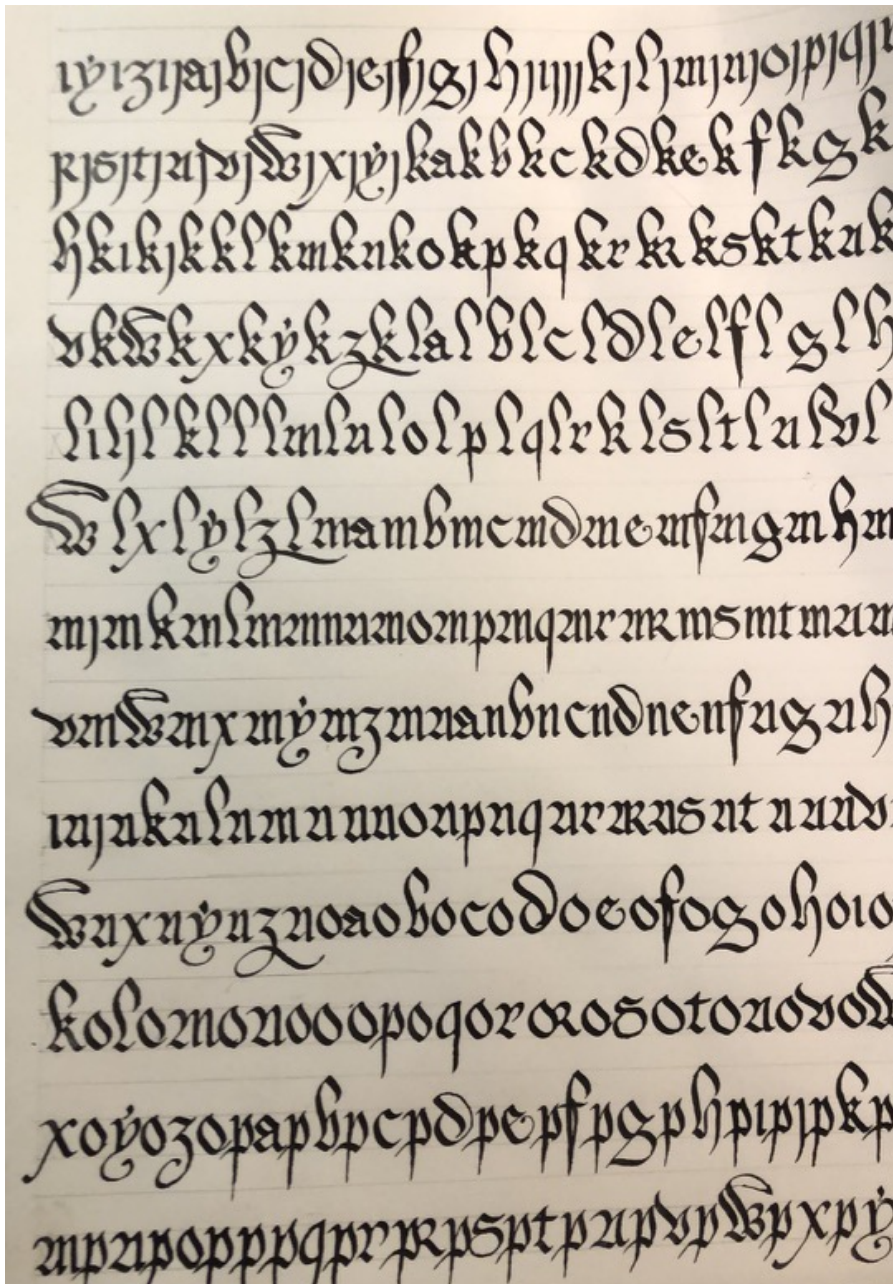 ıyızıjajbjcjdjejfjgjhjıjjjkjljmjnjojpjqjr
rjsjtjujvjwjxjyjkakbkckdkekfkgk
hkıkjkkklkmknkokpkqkrkꝛksktkuk
vkwkxkykzklalblcldlelflglh
lıljlklllmlnlolplqlrlꝛlsltlulvl
wlxlylzlmambmcmdmemfmgmhm
mjmkmlmmmnmompmqmrmꝛmsmtmum
vmwmxmymzmnanbncndnenfngnh
ınjnknlnmnnnonpnqnrnꝛnsntnunv
wnxnynznoaobocodoeofogohoıo
kolomonooopoqoroꝛosotouovow
xoyozopapbpcpdpepfpgphpıpjpkp
mpnpopppqprpꝛpsptpupvpwpxpy